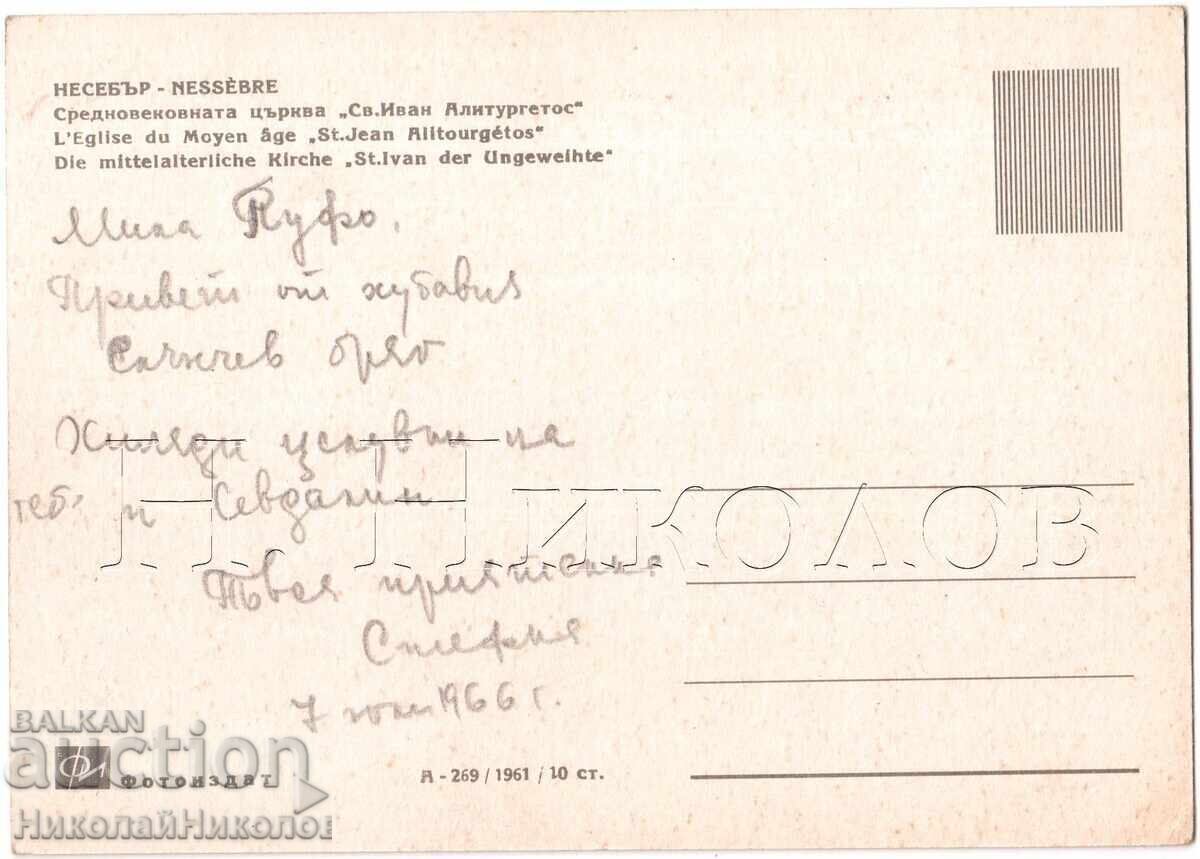 НЕСЕБЪР - NESSÈBRE
Средновековната църква „Св.Иван Алитургетос“
L'Eglise du Moyen âge „St.Jean Alitourgétos“
Die mittelalterliche Kirche „St.Ivan der Ungeweihte“
Мила Куфо.
Привет от хубавия
Слънчев бряг
Хиляди целувки на
теб и Севдалин
Н. Николов
Твоя приятелка
7 юни 1966 г.
BALKAN
auction
Фотоиздат
А - 269 / 1961 / 10 ст.
НиколайНиколов